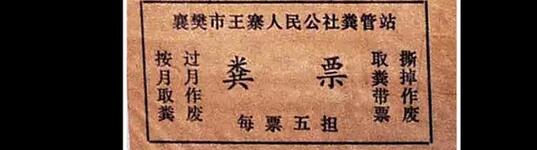 襄樊市王寨人民公社粪管站
粪票
每票五担
按月取粪
过月作废
取粪带票
撕掉作废